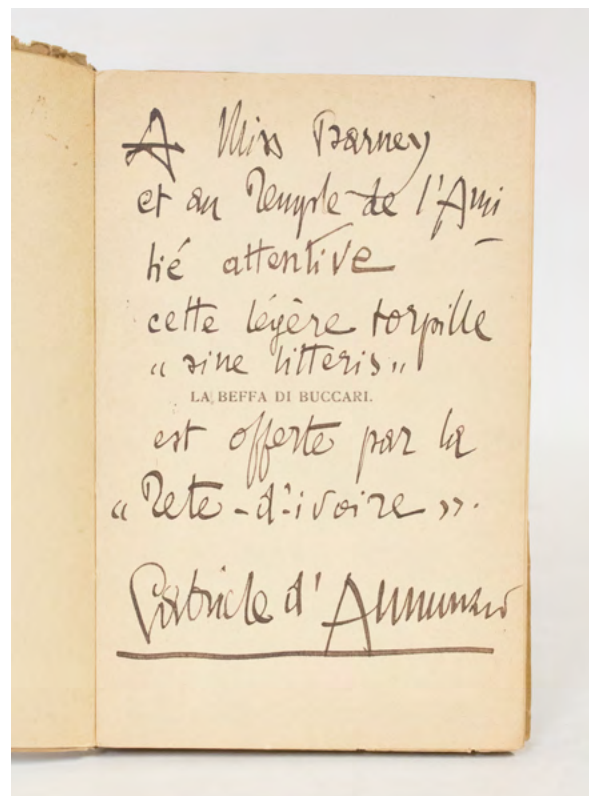 A Miss Barney
et au Temple de l'Ami
tié attentive
cette légère torpille
"sine litteris"
LA BEFFA DI BUCCARI.
est offerte par la
« Tete-d'ivoire ».
Gabriele d'Annunzio